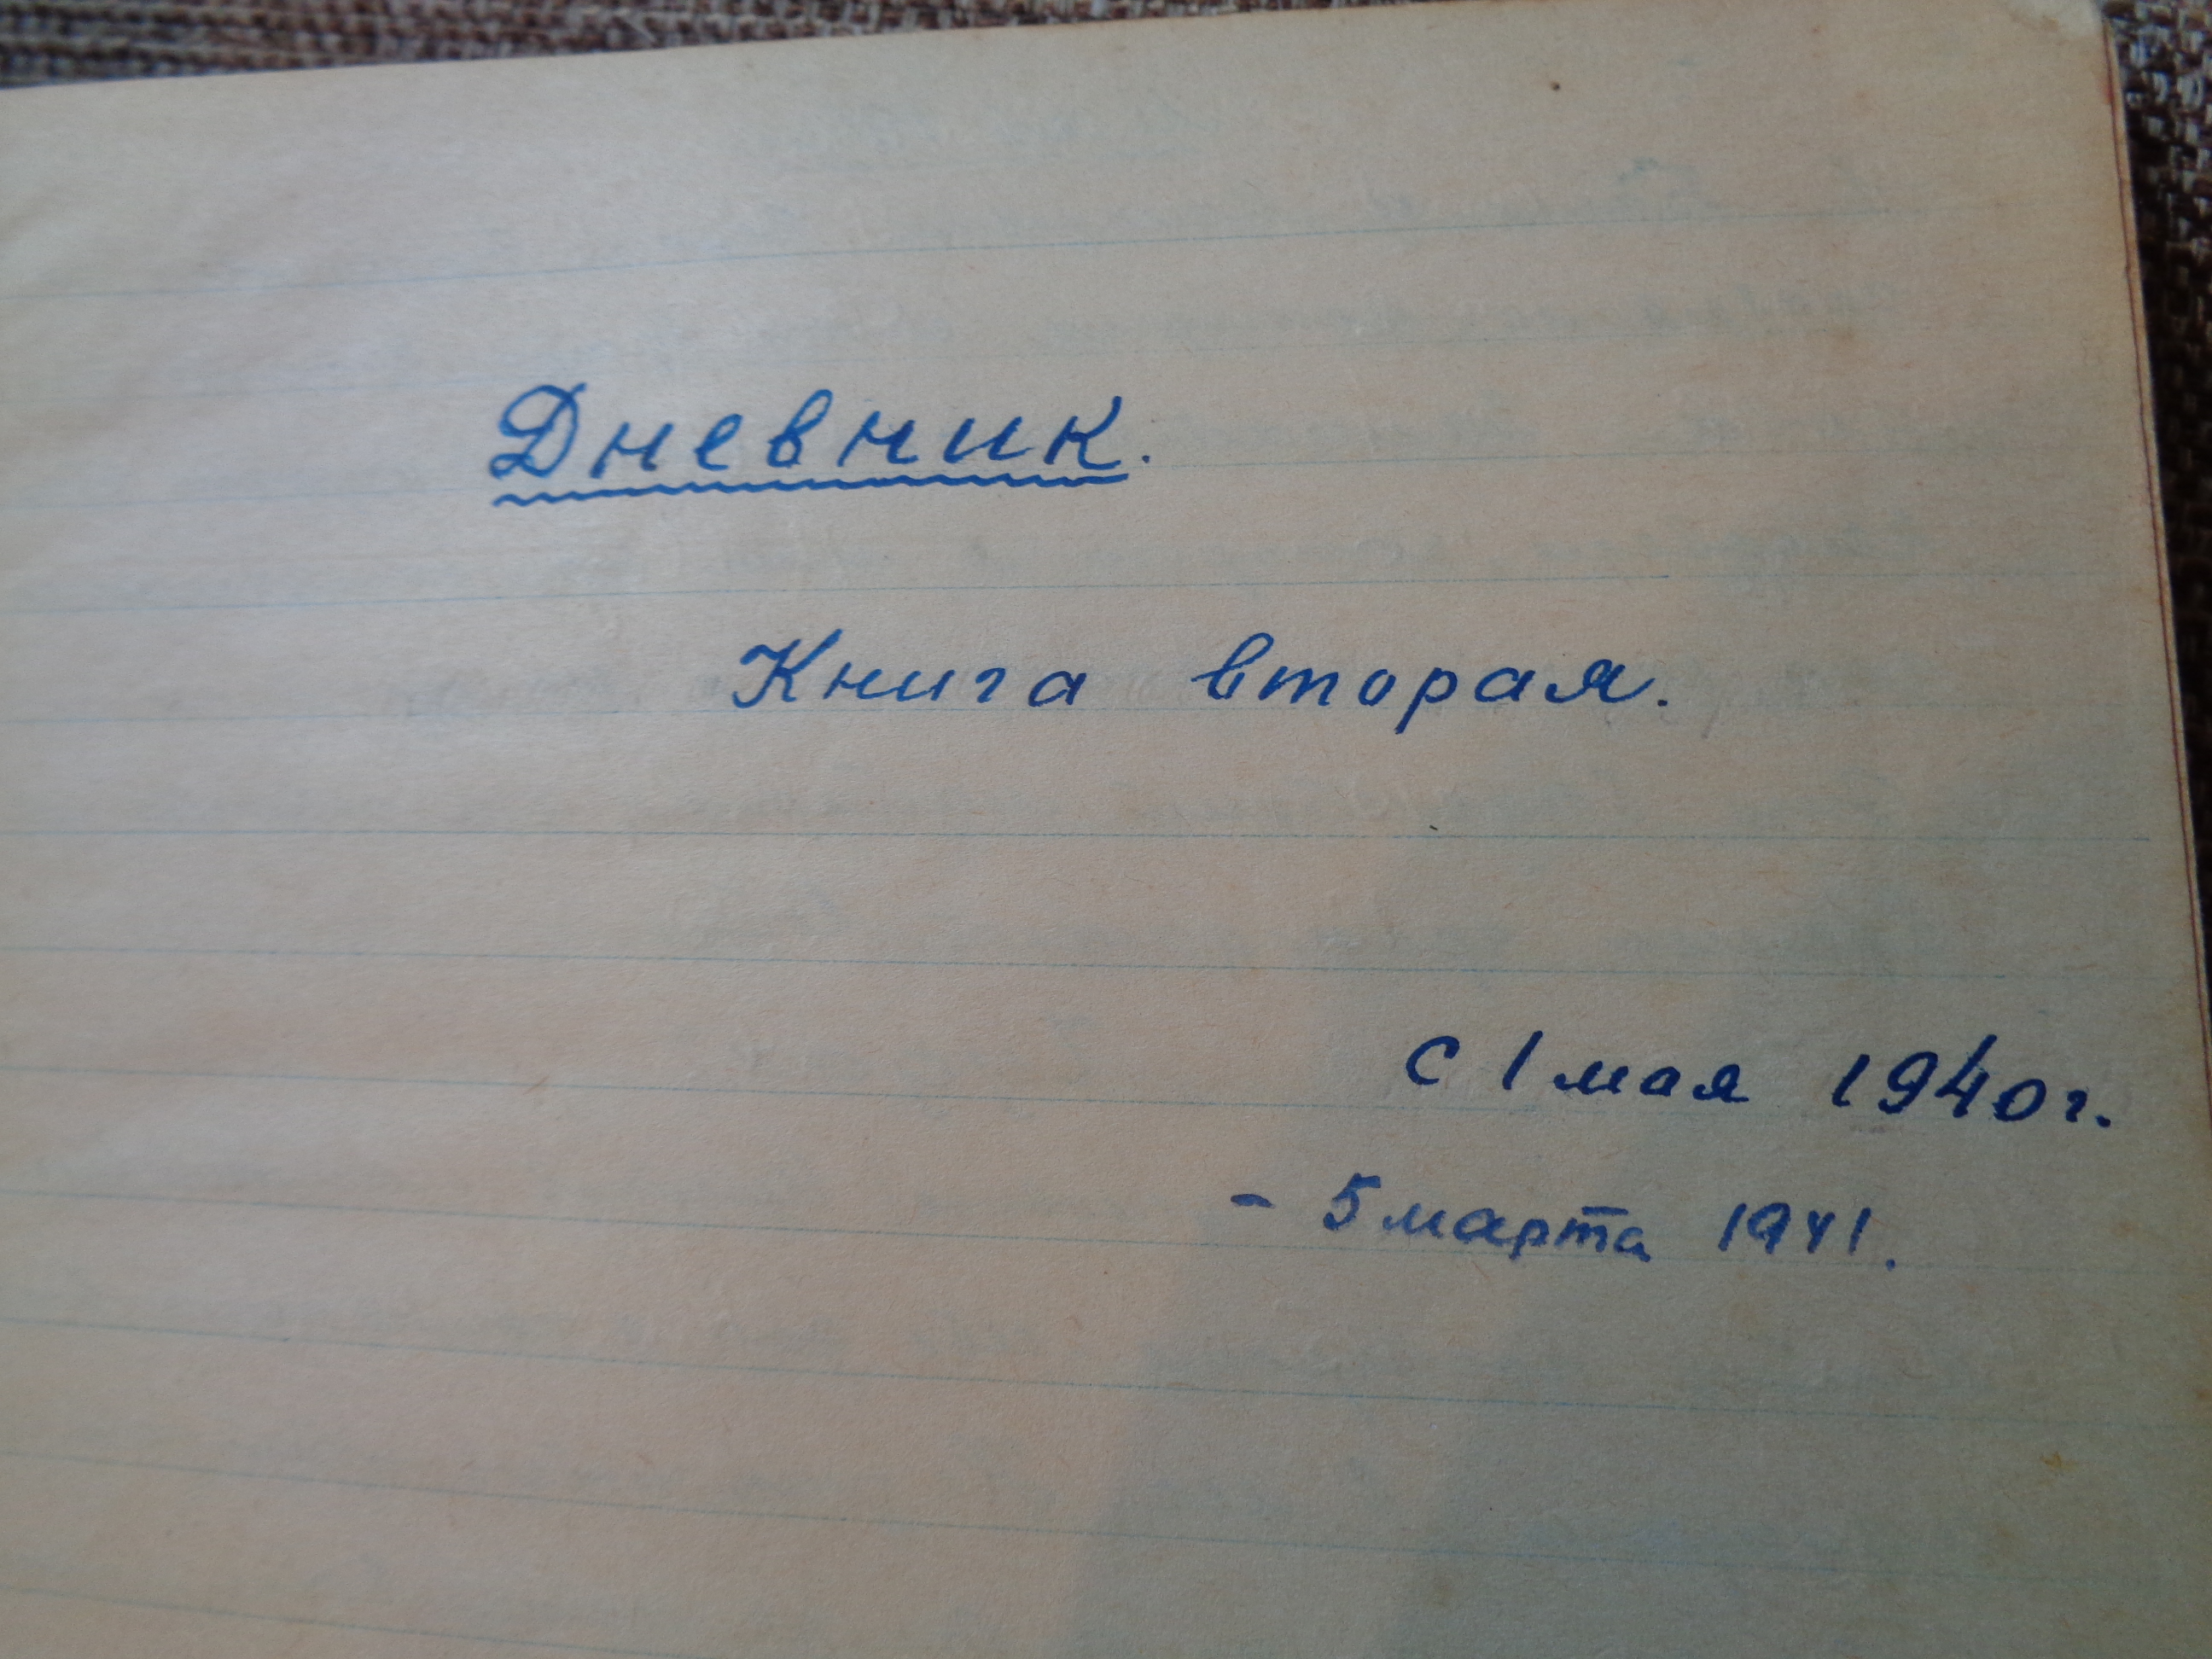 Дневник.
Книга вторая.
С 1 мая 1940 г.
- 5 марта 1941.